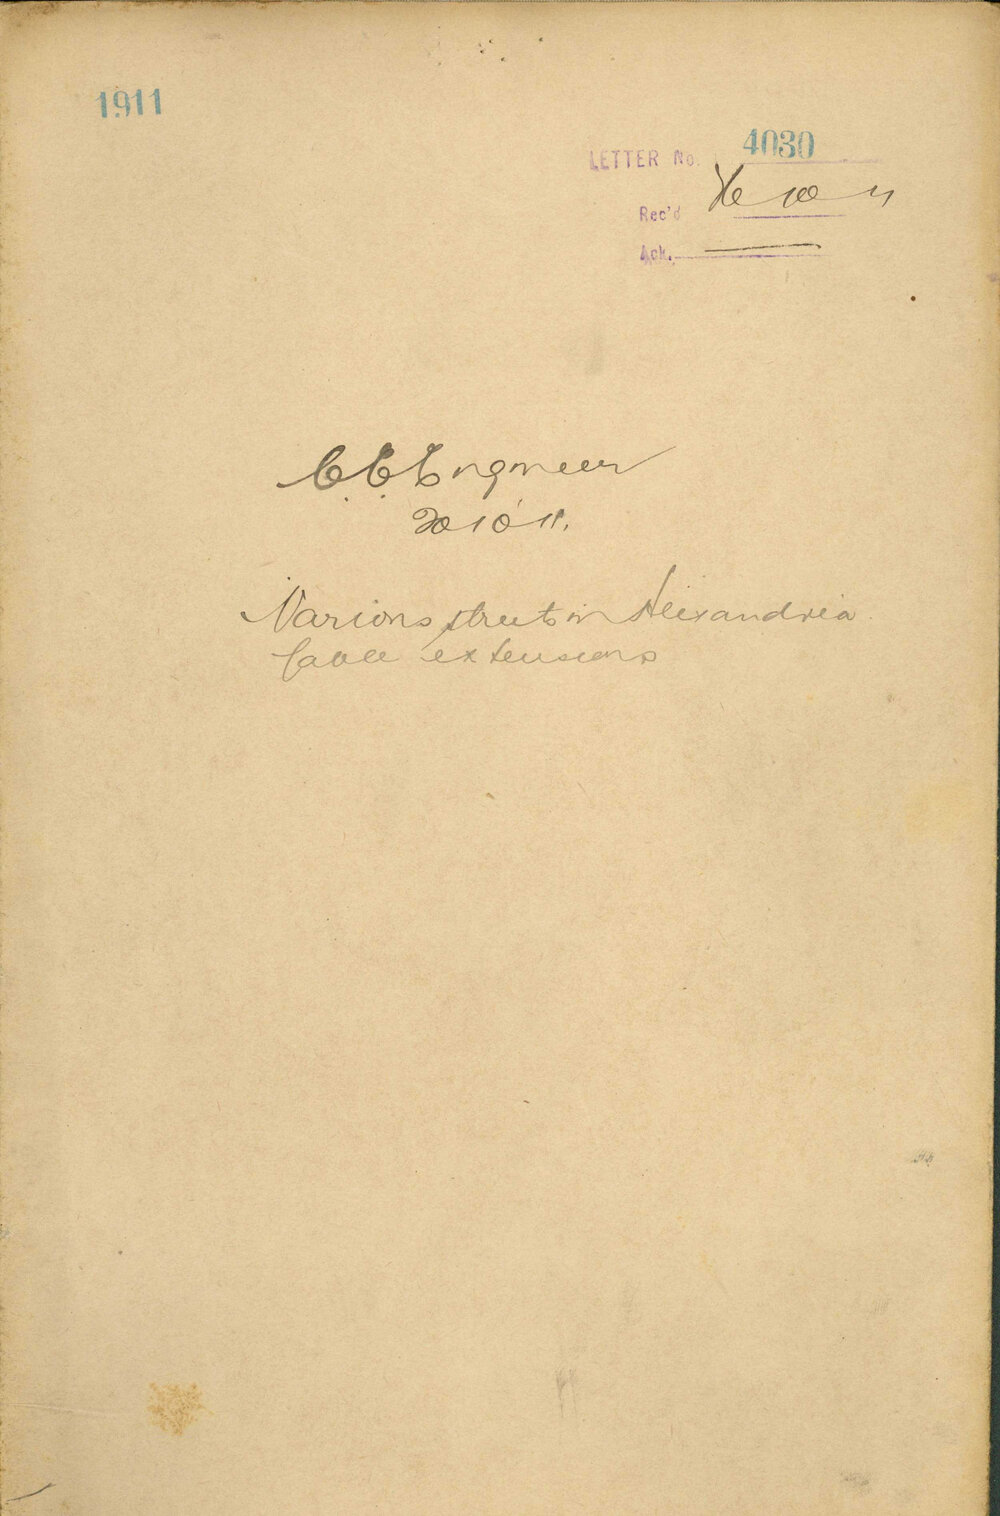 1911
LETTER No. 4030
Rec'd 10 11
Ack.
C.E. Engineer
10 11.
Various streets in Alexandria
Cable extensions